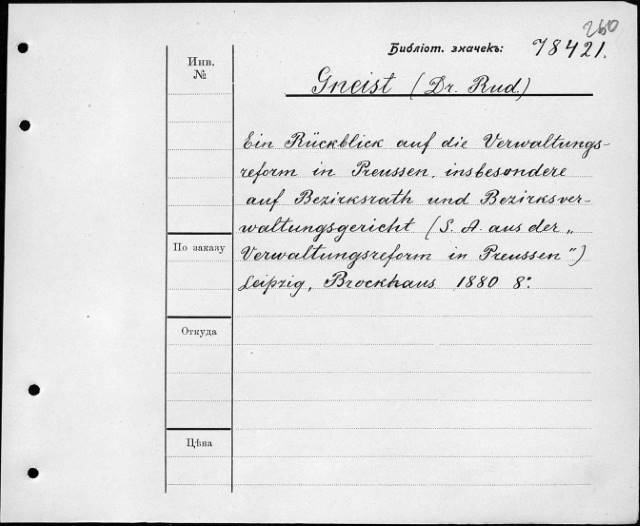 260
Библіот. значекъ: 78421.
Инв.
№
Gneist (Dr. Rud.)
Ein Rückblick auf die Verwaltungs-
reform in Preussen, insbesondere
auf Bezirksrath und Bezirksver-
waltungsgericht (S. A. aus der „
Verwaltungsreform in Preussen")
Leipzig, Brockhaus 1880 8º
По заказу
Откуда
Цѣна